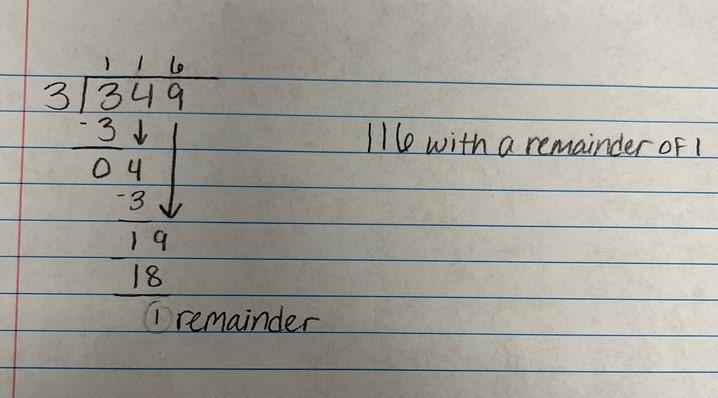 116
3 349
-3
04
-3
19
18
1 remainder
116 with a remainder of 1